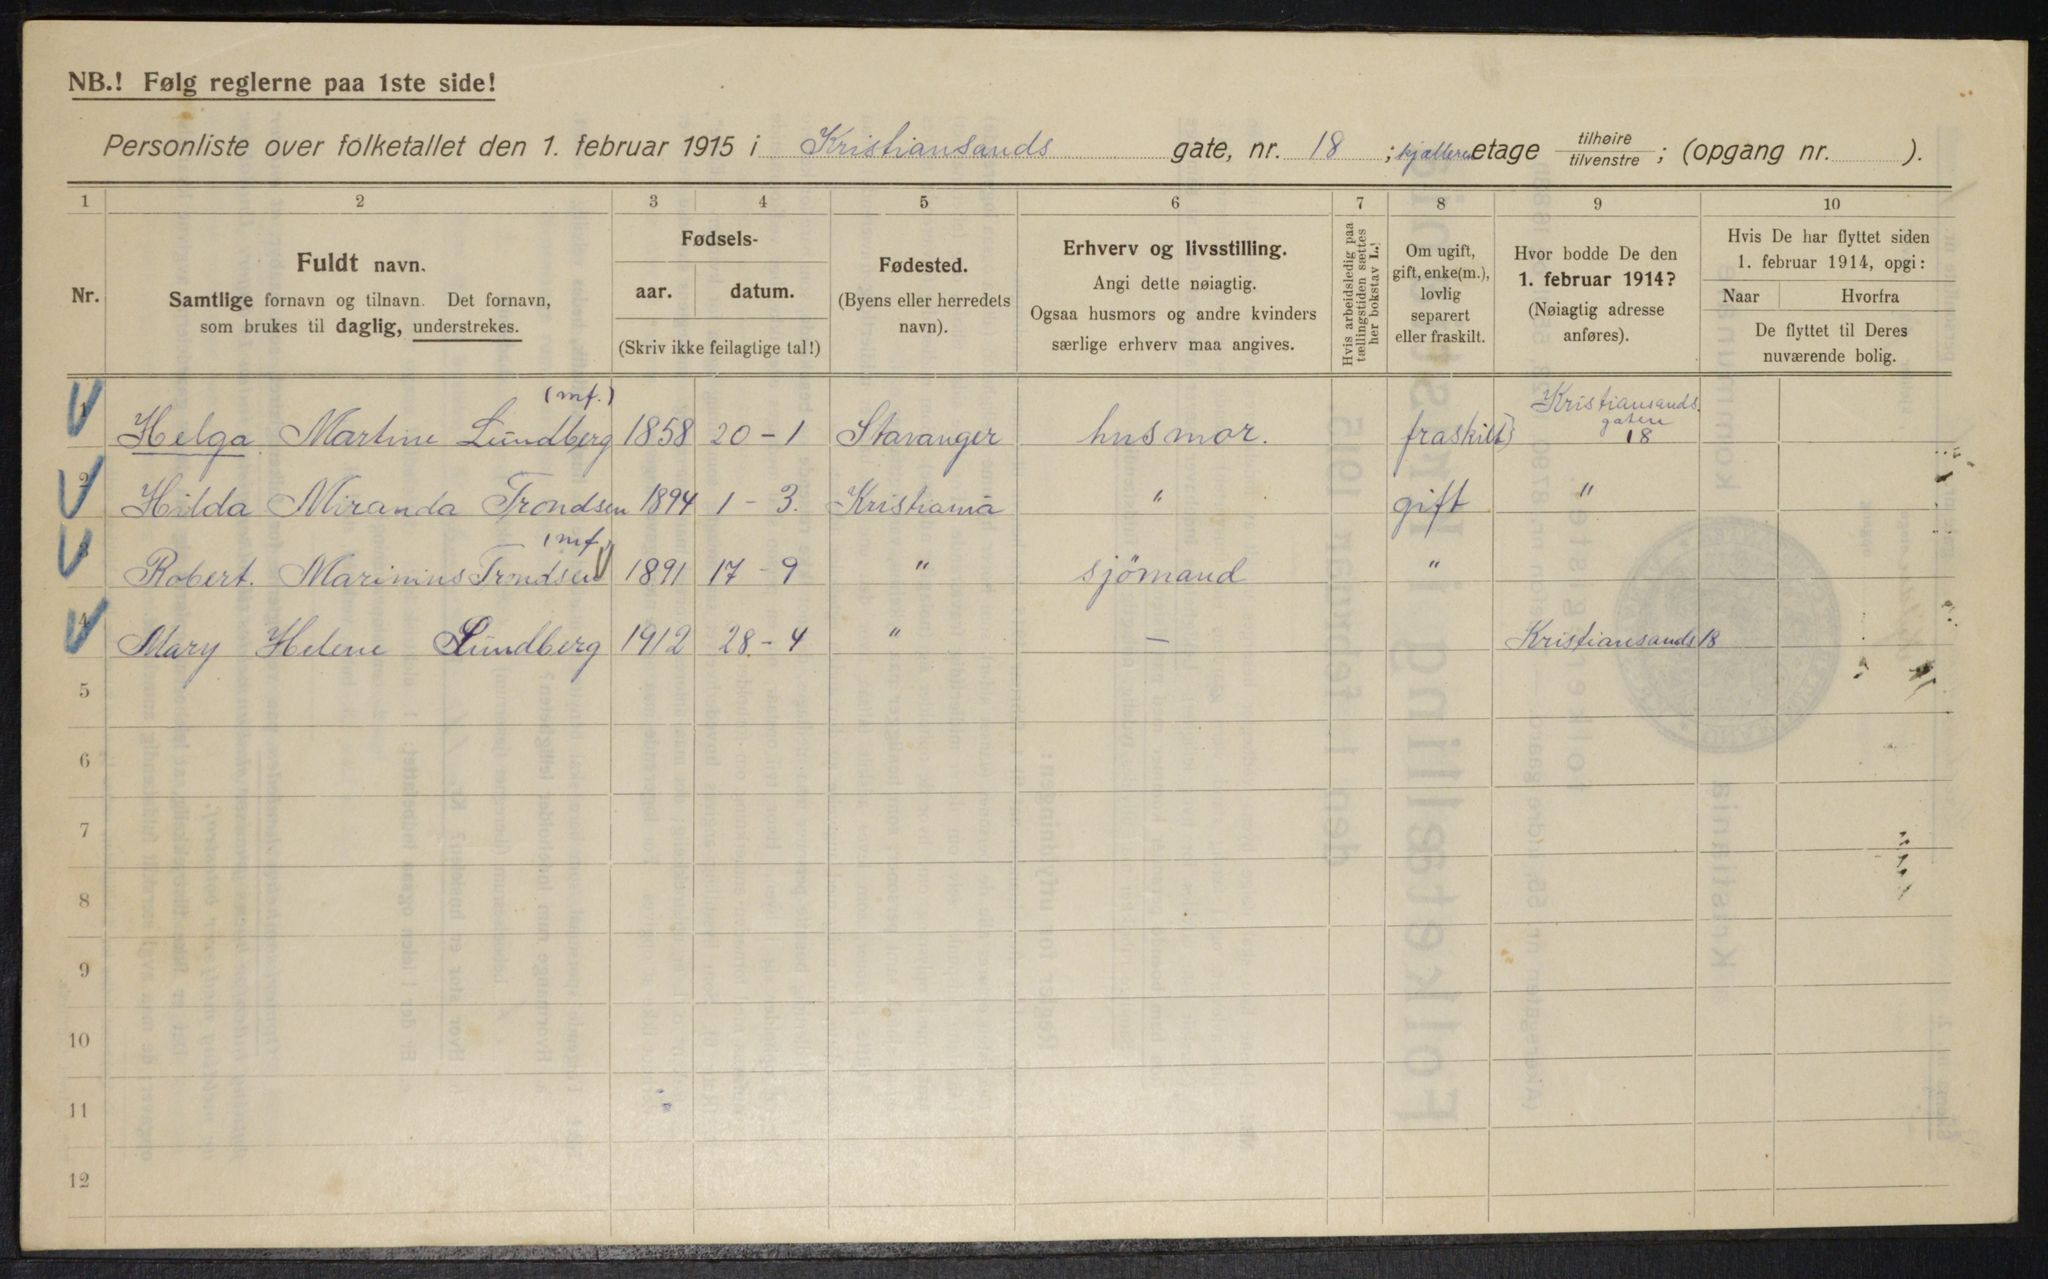 NB.! Følg reglerne paa 1ste side!
Personliste over folketallet den 1. februar 1915 i Kristiansands gate, nr. 18 ; kjælleren etage tilhøire / tilvenstre ; (opgang nr. ).
1 2 3 4 5 6 7 8 9 10
Nr.
Fuldt navn.
Samtlige fornavn og tilnavn. Det fornavn,
som brukes til daglig, understrekes.
Fødsels-
aar. datum.
(Skriv ikke feilagtige tal!)
Fødested.
(Byens eller herredets
navn).
Erhverv og livsstilling.
Angi dette nøiagtig.
Ogsaa husmors og andre kvinders
særlige erhverv maa angives.
Hvis arbeidsledig paa
tællingstiden sættes
her bokstav L.!
Om ugift,
gift, enke(m.),
lovlig
separert
eller fraskilt.
Hvor bodde De den
1. februar 1914?
(Nøiagtig adresse
anføres).
Hvis De har flyttet siden
1. februar 1914, opgi:
Naar Hvorfra
De flyttet til Deres
nuværende bolig.
(mf.)
1 Helga Martine Lundberg 1858 20-1 Stavanger husmor. fraskilt Kristiansands.
gaten
18
2 Hilda Miranda Trondsen 1894 1-3. Kristiania " gift "
(mf.
3 Robert. Marinius Trondsen 1891 17-9 " sjömand "
4 Mary Helene Lundberg 1912 28-4 " — Kristiansands 18
5
6
7
8
9
10
11
12